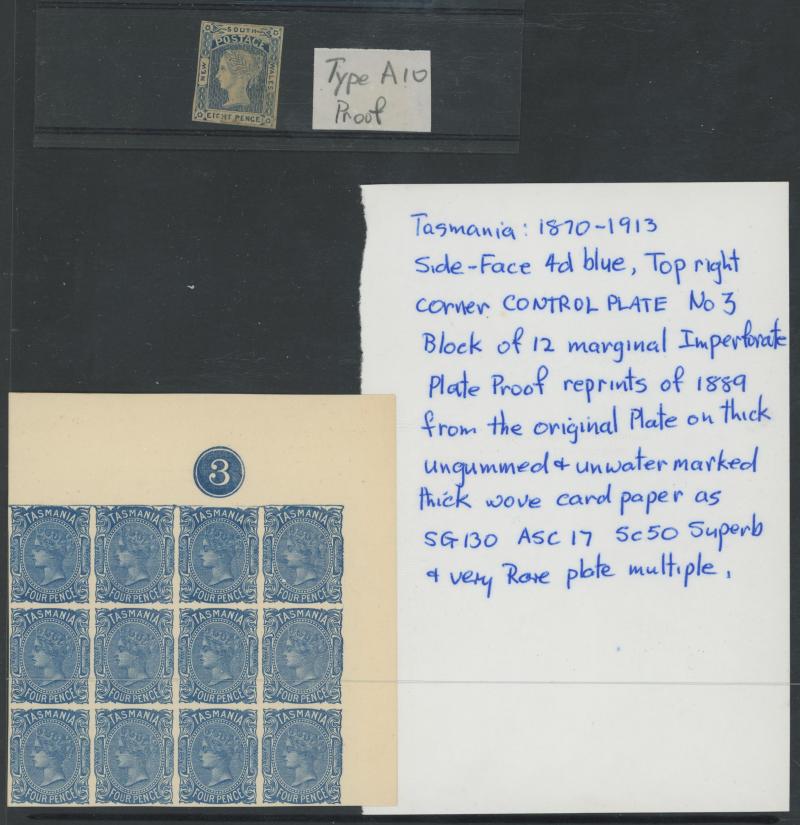 SOUTH
POSTAGE
NEW
WALES
EIGHT PENCE
Type A10
Proof
Tasmania: 1870-1913
Side-Face 4d blue, Top right
corner CONTROL PLATE No 3
Block of 12 marginal Imperforate
Plate Proof reprints of 1889
from the original Plate on thick
ungummed & unwatermarked
thick wove card paper as
SG130 ASC 17 Sc50 Superb
& very Rare plate multiple.
3
TASMANIA TASMANIA TASMANIA TASMANIA
FOUR PENCE FOUR PENCE FOUR PENCE FOUR PENCE
TASMANIA TASMANIA TASMANIA TASMANIA
FOUR PENCE FOUR PENCE FOUR PENCE FOUR PENCE
TASMANIA TASMANIA TASMANIA TASMANIA
FOUR PENCE FOUR PENCE FOUR PENCE FOUR PENCE